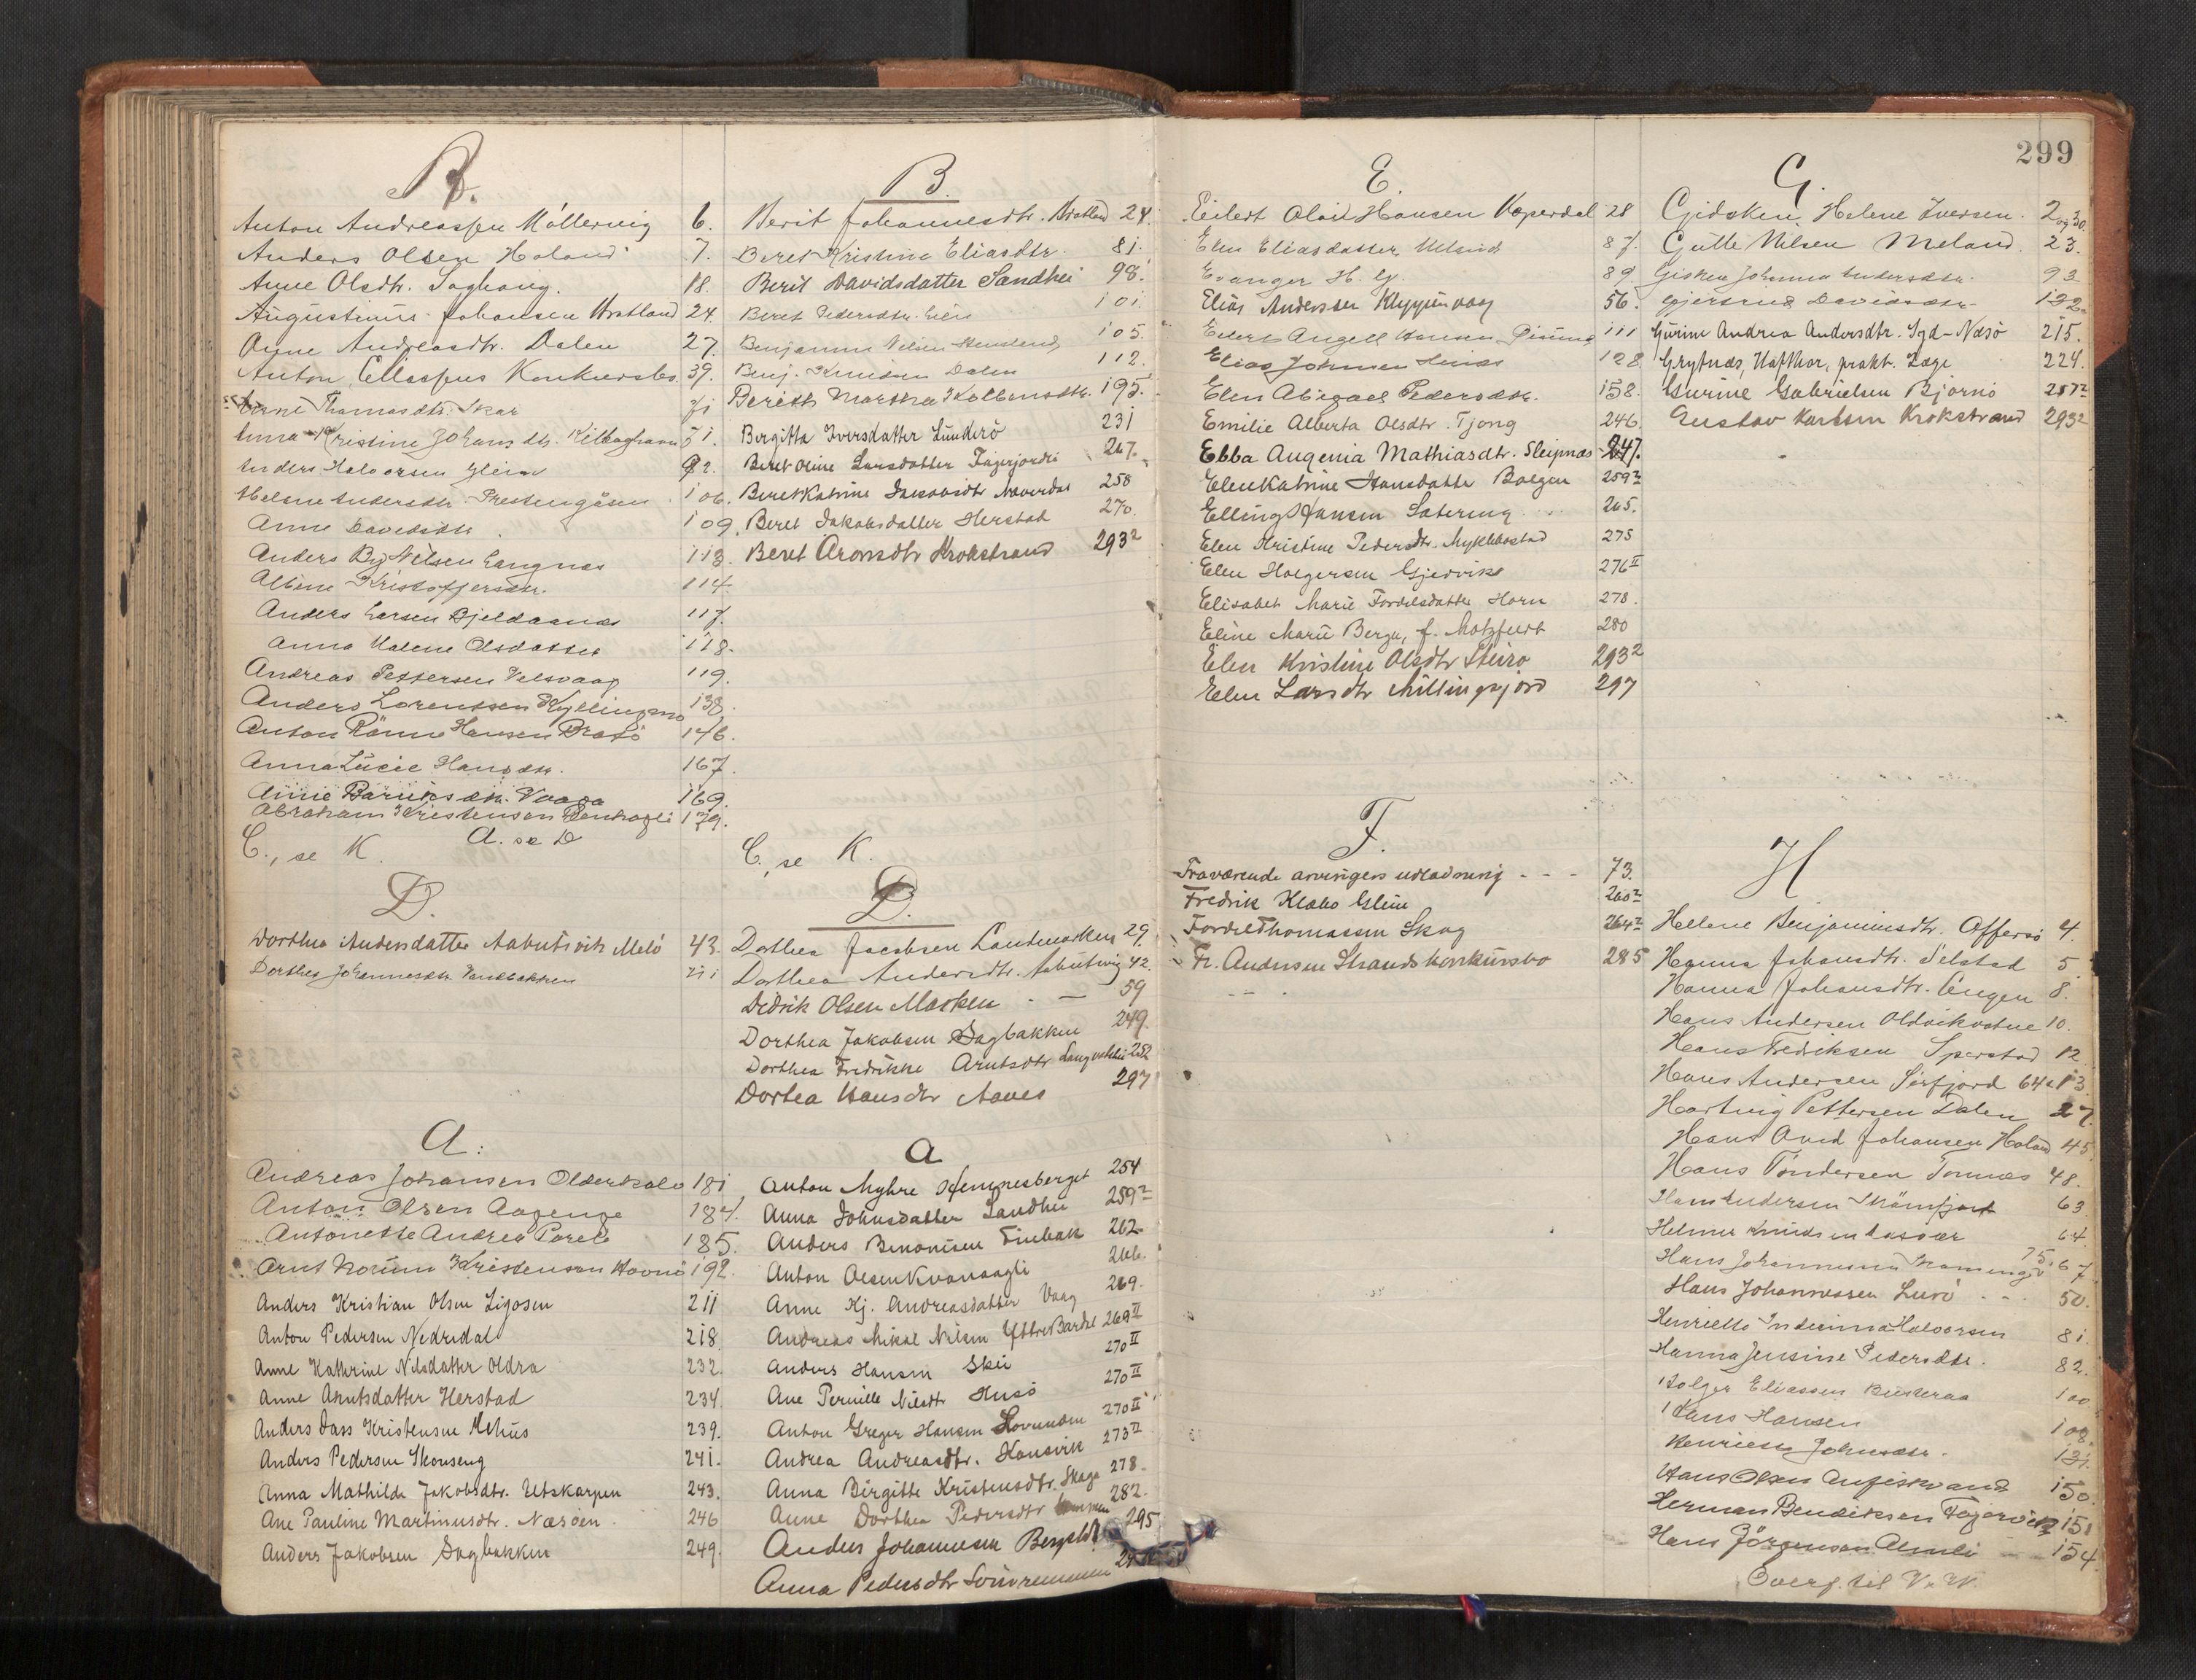 A.
Anton Andreassen Möllervig 6.
Anders Olsen Haland 7.
Anne Olsdtr. Saghaug. 18.
Augustinus Johansen Bratland 24.
Anne Andreasdtr. Dalen 27.
Anton Eliassens Konkursbo. 39.
Anne Thomasdtr. Skar 71
Anna Kristine Johansdtr. 51.
Anders Halvorsen Glein 92.
Helene Andersdtr. Prestengåsen 106.
Anne Davidsdtr. 109.
Anders Bj. Nilsen Langnes 113.
Albine Kristoffersdtr. 114
Anders Larsen Bjeldaanes 117.
Anna Malene Olsdatter 118.
Andreas Pettersen Velsvaag 119.
Anders Lorentsen Kyllingmo 138.
Anton Rönne Hansen Brasö 146.
Anna Lucie Hansdtr. 167.
Anne Bariksdtr. Vaaga 169.
Abraham Kristensen 179.
A. se D
C., se K.
D.
Dorthea Andersdatter Aabutsvik Melö 43.
Dorthea Johannesdtr. Sandbakken 211
A.
Andreas Johansen Olderskole 181
Anton Olsen Aagenge 184.
Antonette Andrea Forelo 185.
Arnt Norum Kristensen Havnö 192.
Anders Kristian Olsen Ligosen 211
Anton Pedersen Nedredal 218.
Anne Kathrine Nilsdatter Oldra 232.
Anne Arntsdatter Herstad 234.
Anders Dass Kristensen Mehus 239.
Anders Pedersen Skonseng 241.
Anna Mathilde Jakobsdtr. Utskarpen 243.
Ane Pauline Martinusdtr. Næsöen 246
Anders Jakobsen Dagbakken 249.
B.
Berit Johannesdtr. Bratland 24.
Beret Kristine Eliasdtr. 81.
Berit Davidsdatter Sandhei 98.
Beret Pedersdtr. 101.
Benjamin Nilsen 105.
Benj. Knudsen Dalen 112.
Berith Martha Kolbensdtr. 195.
Bergitta Iversdatter Lunderö 231
Beret Oline Larsdatter Fagerjordli 247.
Beret Katrine Jakobsdtr Næverdal 258
Beret Jakobsdatter Herstad 270.
Beret Aronsdtr Krokstrand 293²
C., se K.
D.
Dorthea Jacobsen Landmarken 29.
Dorthea Andersdtr. Aabutsvig 42.
Didrik Olsen Masken 59
Dorthea Jakobsen Dagbakken 249.
Dorthea Fredrikke Arntsdtr Langvashei 252
Dortea Hansdtr Aanes 297
A
Anton Myhre Hemnesberget 254
Anna Johnsdatter Sandhei 259²
Anders Benonisen Finbak 262
Anton Olsen Kvanaagli 266.
Anne Kj. Andreasdatter Vaag 269.
Andreas Mikal Nilsen Yttre Bardal 269 II
Anders Hansen Skei 270 II
Ane Pernille Nilsdtr Husö 270 II
Anton Greger Hansen Lovunden 270 II
Andrea Andreasdtr. Hansvik 273 II
Anna Birgitte Kristensdtr. Skaga 278.
Anne Dorthea Pedersdtr 282.
Anders Johannesen 295
Anna Pedersdtr
299
E.
Eilert Olai Hansen Væperdal 28
Elen Eliasdatter 87.
Evanger H. G. 89
Elias Anderssen Klyppinvaag 56.
Eilert Angell Hansen 111
Elias Johnsen 128.
Elen Abigael Pedersdtr. 158.
Emilie Alberta Olsdtr. Tjong 246.
Ebba Augenia Mathiasdtr. Sleipnæs 247.
Elen Katrine Hansdatter Bolgen 259²
Elling Hansen Sætering 265.
Elen Kristine Pedersdtr. Myklebostad 275
Elen Holgersen Gjervike 276 II
Elisabet Marie Fordelsdatter Horn 278.
Eline Marie Berge, f. Motzfeldt 280
Elen Kristine Olsdtr Steiro 293²
Elen Larsdtr Millingsjord 297
F.
Fraværende arvingers utlodning 73.
Fredrik Klæbo Glein 260²
Fordel Thomassen Skog 264²
Fr. Andersen Strands konkursbo 285
G.
Gidsken Helene Iversen. 2 og 30.
Gutte Nilsen Meland. 23.
Gisken Johanna Andersdtr. 93
Gjertrud Davidsdtr. 132.
Gurine Andrea Andersdtr. Sgd-Næsö 215.
Grytnæs, Hafthor, prakt. Læge 224.
Gurine Gabrielsen Bjørnö 257²
Gustav Karlsen Krokstrand 293²
H
Helene Benjaminsdtr. Offersö 4.
Hanna Johansdtr. Selstad 5
Hanna Johansdtr. Engen 8.
Hans Andersen Oldvikvatne 10.
Hans Fredriksen Sperstad 12
Hans Andersen Sørfjord 64 13
Hartvig Pettersen Dalen 27.
Hans Arnd Johansen Haland 45.
Hans Töndersen Tonnæs 48.
Hans Andersen 63.
Helmer Knudsen Aasvær 64.
Hans Johannesen 75. 67
Hans Johannessen Lurö 50.
Henriette Indianna Halvorsen 81.
Hanna Jensine Pedersdtr. 82.
Holger Eliassen 100
Hans Hansen 108.
Henriette Johnsdtr. 131.
Hans Olsen Anfiskvand 150.
Herman Bendiksen Fagervik 151
Hans Jörgensen Almli 154.
Overf. til V. W.